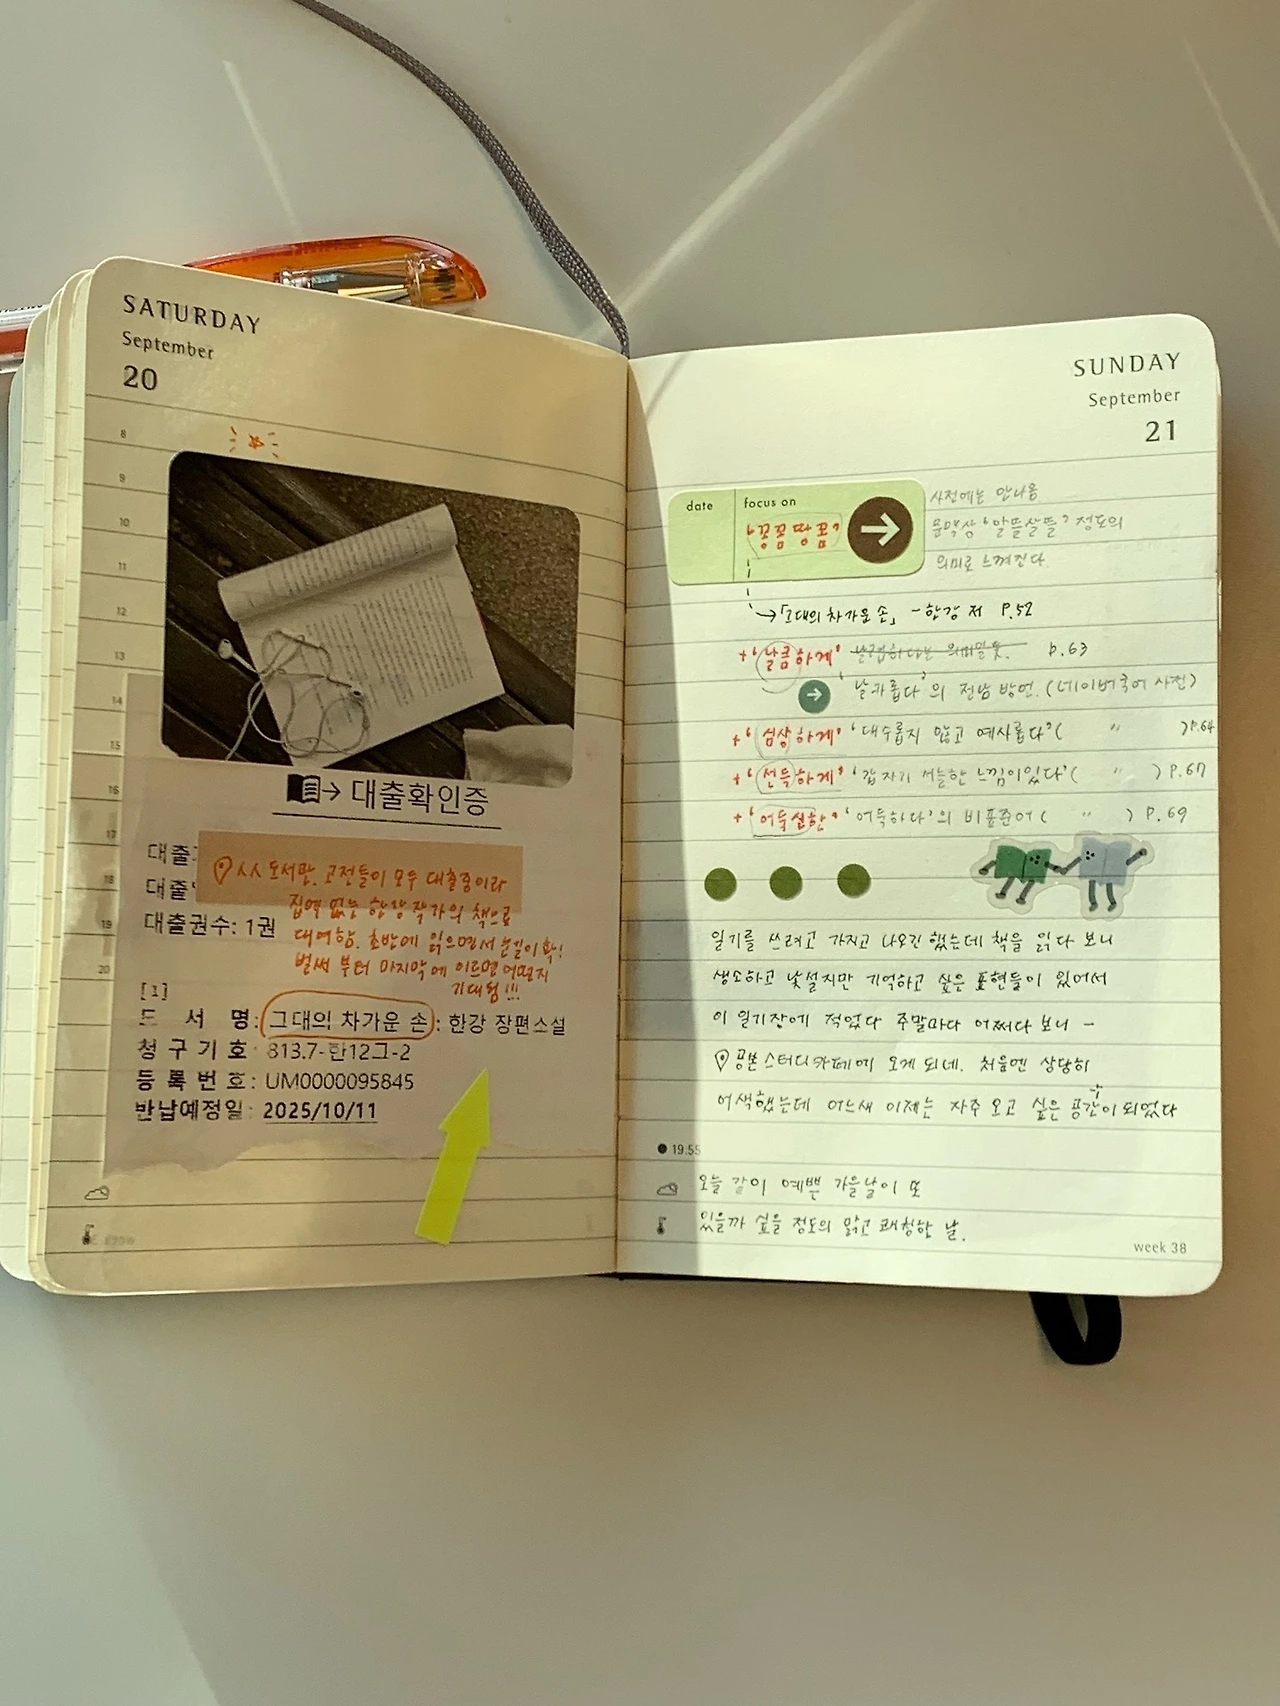 SATURDAY
September
20
8
9
10
11
12
13
14
15
16
17
18
19
20
대출확인증
대출
대출
대출권수: 1권
ㅅㅅ도서관. 고전들이 모두 대출중이라
집에 없는 한강 작가의 책으로
대여함. 초반에 읽으면서 눈길이 확!
벌써 부터 마지막에 이르면 어떨지
기대됨!!!
[1]
도 서 명: 그대의 차가운 손: 한강 장편소설
청구기호: 813.7-한12그-2
등록번호: UM0000095845
반납예정일: 2025/10/11
SUNDAY
September
21
date focus on
사전에는 안나옴
문맥상 '알뜰살뜰' 정도의
의미로 느껴진다.
→「그대의 차가운 손」 - 한강 저 P.52
+ '날큼하게' p.63
→ '날카롭다'의 전남 방언. (네이버 국어 사전)
+ '심상하게' '대수롭지 않고 예사롭다' ( " ) P.64
+ '선득하게' '갑자기 서늘한 느낌이 있다' ( " ) P.67
+ '어둑실한' '어둑하다'의 비표준어 ( " ) P.69
일기를 쓰려고 가지고 나오긴 했는데 책을 읽다 보니
생소하고 낯설지만 기억하고 싶은 표현들이 있어서
이 일기장에 적었다 주말마다 어쩌다 보니 -
공본 스터디 카페에 오게 되네. 처음엔 상당히
어색했는데 어느새 이제는 자주 오고 싶은 공간이 되었다
19.55
오늘 같이 예쁜 가을날이 또
있을까 싶을 정도의 맑고 쾌청한 날.
week 38